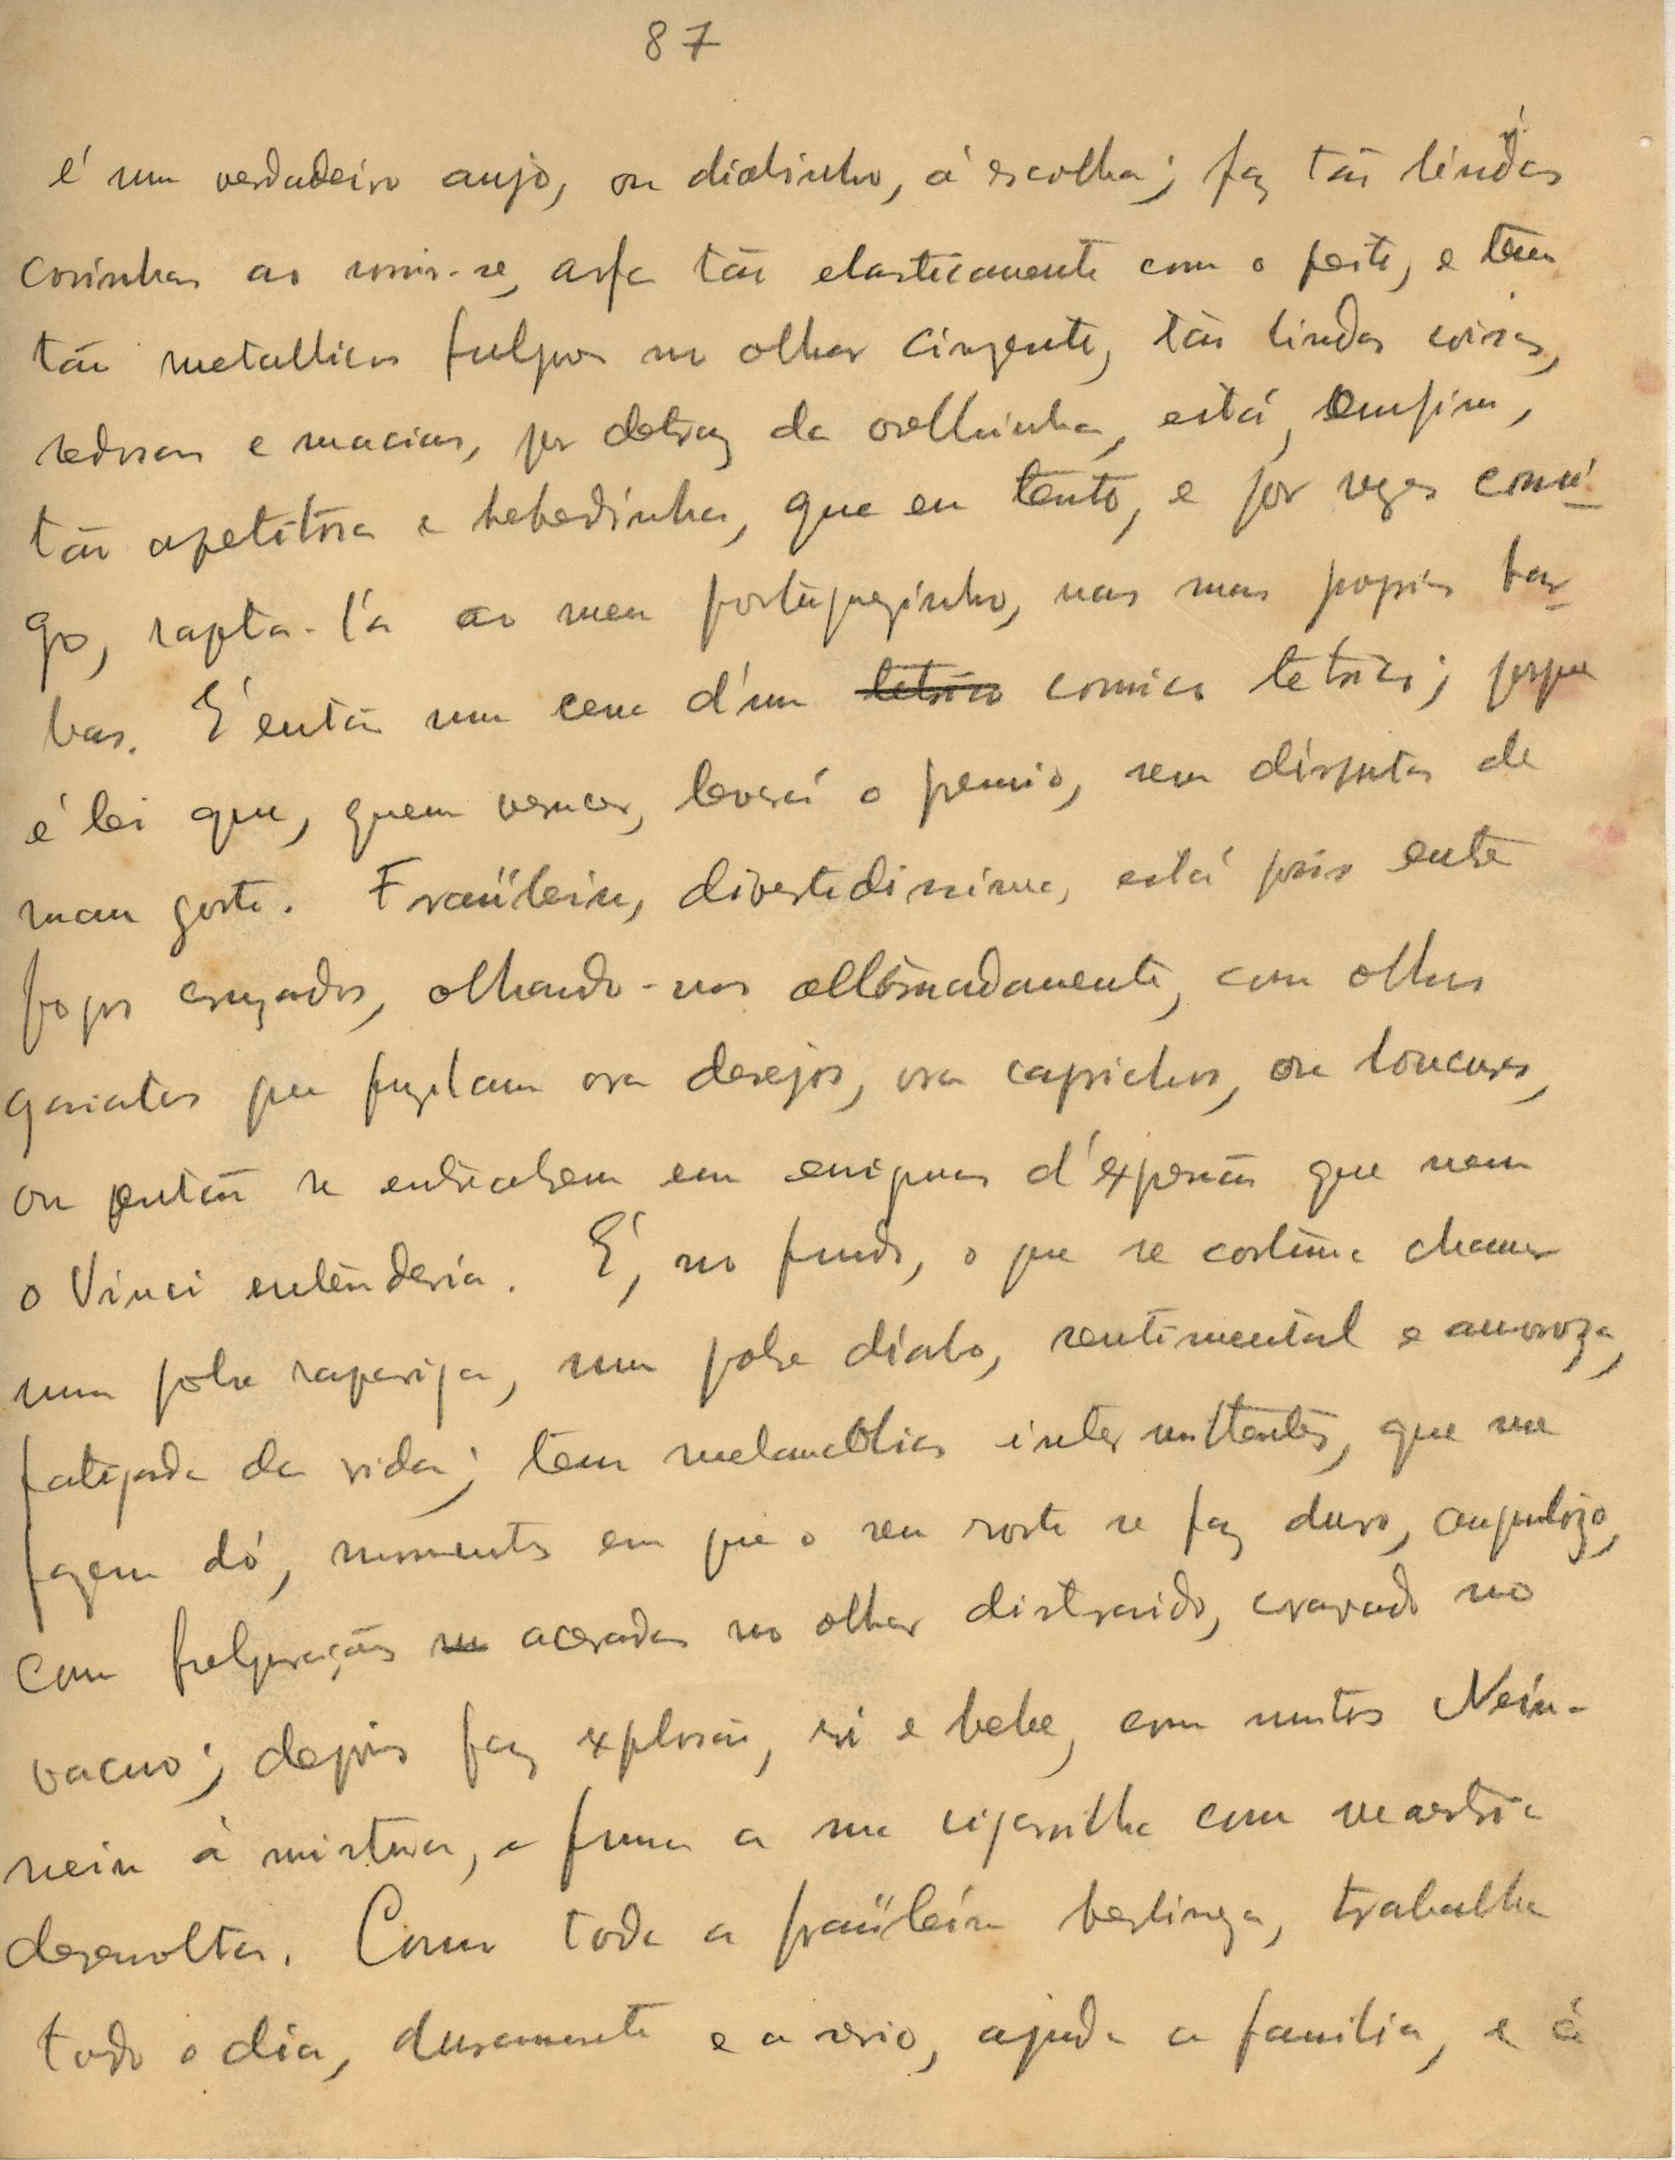 87
é um verdadeiro anjo, ou diabinho, á escolha; faz tão lindas
covinhas ao sorrir-se, arfa tão elasticamente com o peito, e tem
tão metallicos fulgores no olhar cinzento, tão lindas coisas,
redosas e macias, por detraz da orelhinha, está, emfim,
tão apetitosa e bebedinha, que eu tento, e por vezes consi-
go, rapta-l'a ao meu portuguezinho, nas suas proprias bar-
bas. É então uma cena d'um tetrico comico tetrico; porque
é lei que, quem vencer, levará o premio, sem disputas de
mau gosto. Fraülein, divertidissima, está pois entre
fogos cruzados, olhando-nos alternadamente, com olhos
gaiatos que fuzilam ora desejos, ora caprichos, ou loucuras,
ou então se entreabrem em enigmas d'expressão que nem
o Vinci entenderia. É, no fundo, o que se costuma chamar
uma pobre rapariga, um pobre diabo, sentimental e amoroza,
fatigada da vida; tem melancolias intermittentes, que me
fazem dó, momentos em que o seu rosto se faz duro, angulozo,
com fulgurações aceradas no olhar distraido, cravado no
vacuo; depois faz explosão, ri e bebe, com muitos Nein-
nein á mistura, e fuma a sua cigarrilha com maestria
desenvolta. Como toda a fraülein berlineza, trabalha
todo o dia, duramente e a serio, ajuda a familia, e á